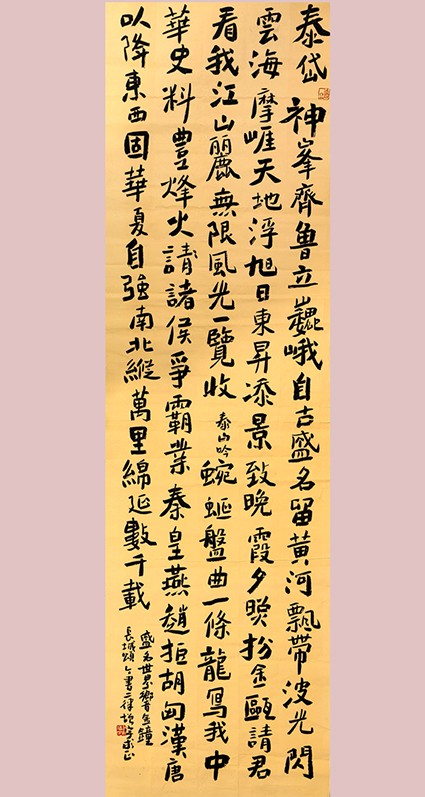 泰岱 神峯齊魯立巍峨自古盛名留黃河飄帶波光閃
雲海摩崕天地浮旭日東昇添景致晚霞夕煚扮金甌請君
看我江山麗無限風光一覽收 泰山吟 蜿蜒盤曲一條龍寫我中
華史料豐烽火請諸侯爭霸業秦皇燕趙拒胡匈漢唐
以降東西固華夏自強南北縱萬里綿延數千載
盛名世界響金鐘
長城頌 今書二律